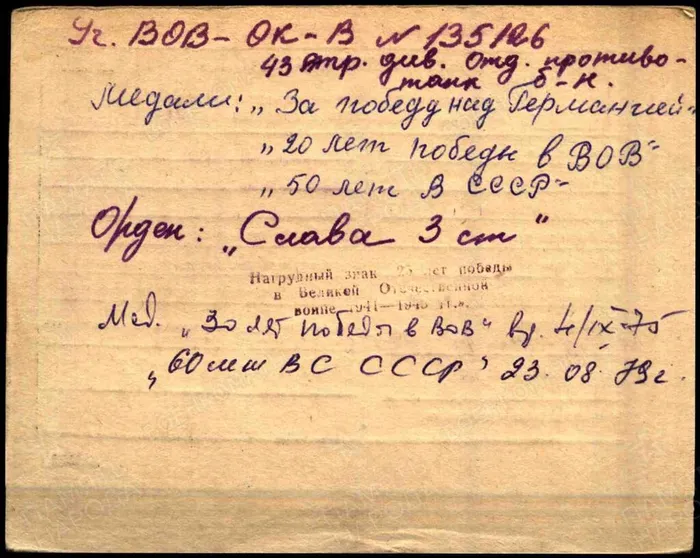 Уг. ВОВ - ОК - В № 135126
43 стр. див. Отд. противо-
танк б-н.
Медали: „За победу над Германией"
„20 лет победы в ВОВ"
„50 лет В СССР"
Орден: „Слава 3 ст"
Нагрудный знак „25 лет победы
в Великой Отечественной
войне 1941—1945 гг.".
Мед. „30 лет победы в ВОВ" вр. 4/IX-75
„60 лет ВС СССР" 23.08.79г.